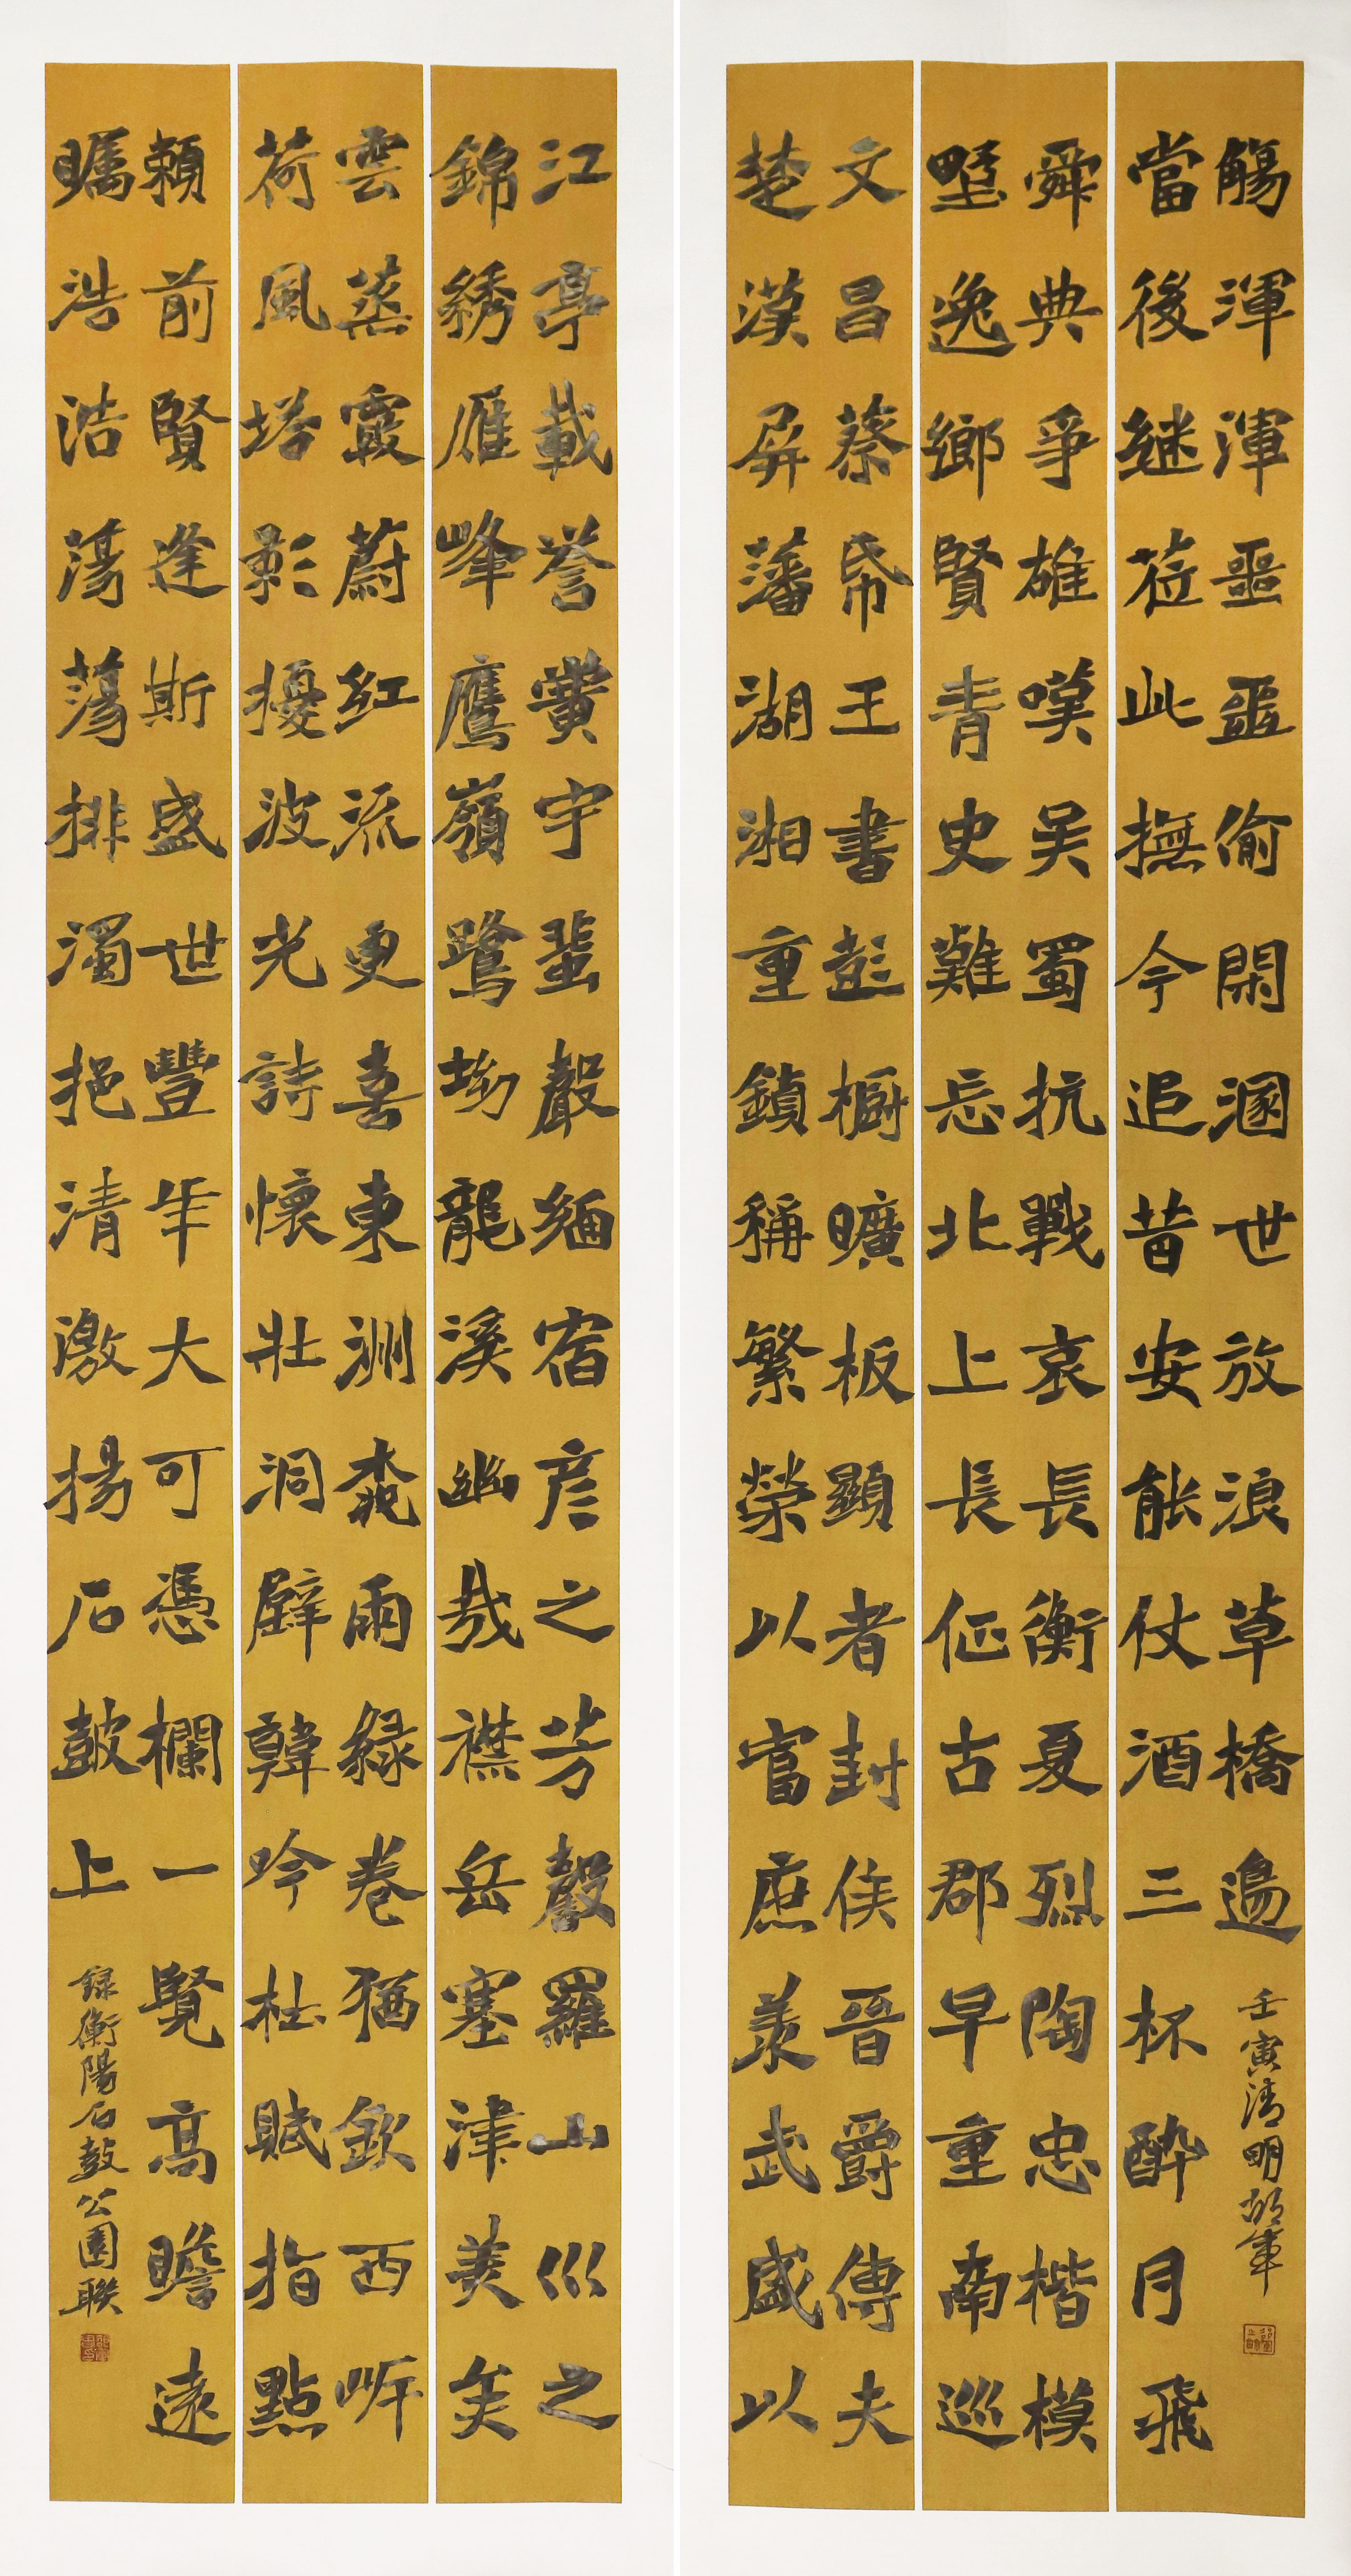 江亭載譽黌宇蜚聲緬宿彥之芳馨羅山巛之
錦綉雁峰鷹嶺鷺坳龍溪幽哉襟岳塞津美矣
雲蒸霞蔚紅流更喜東洲桃雨綠卷猶欽西岍
荷風塔影擾波光詩懷壯洞壁韓吟杜賦指點
頼前賢逢斯盛世豐年大可憑欄一覧高瞻遠
矚浩浩蕩蕩排濁挹清激揚石鼓上
錄衡陽石鼓公園聯
楚漢屏藩湖湘重鎮稱繁榮以富庶羨武盛以
文昌蔡帋王書彭櫥曠板顯者封侯晉爵傳夫
墅逸鄉賢青史難忘北上長征古郡早重南巡
舜典爭雄嘆吳蜀抗戰哀長衡夏烈陶忠楷模
當後継莅此撫今追昔安能仗酒三杯醉月飛
觴渾渾噩噩偷閑溷世放浪草橋邊
壬寅清明